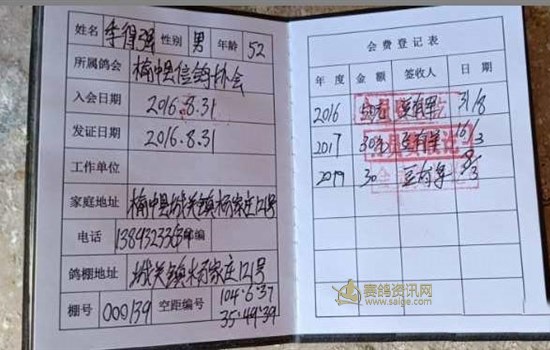 姓名 李得强 性别 男 年龄 52
所属鸽会 榆中县信鸽协会
入会日期 2016.8.31
发证日期 2016.8.31
工作单位
家庭地址 榆中县城关镇杨家庄121号
电话 邮编
鸽棚地址 城关镇杨家庄121号
棚号 000139 空距编号 104·6·37
35·49·39
会费登记表
年度 金额 签收人 日期
2016 50元 31/8
2017 30元
2019 30
赛鸽资讯网
www.saige.com